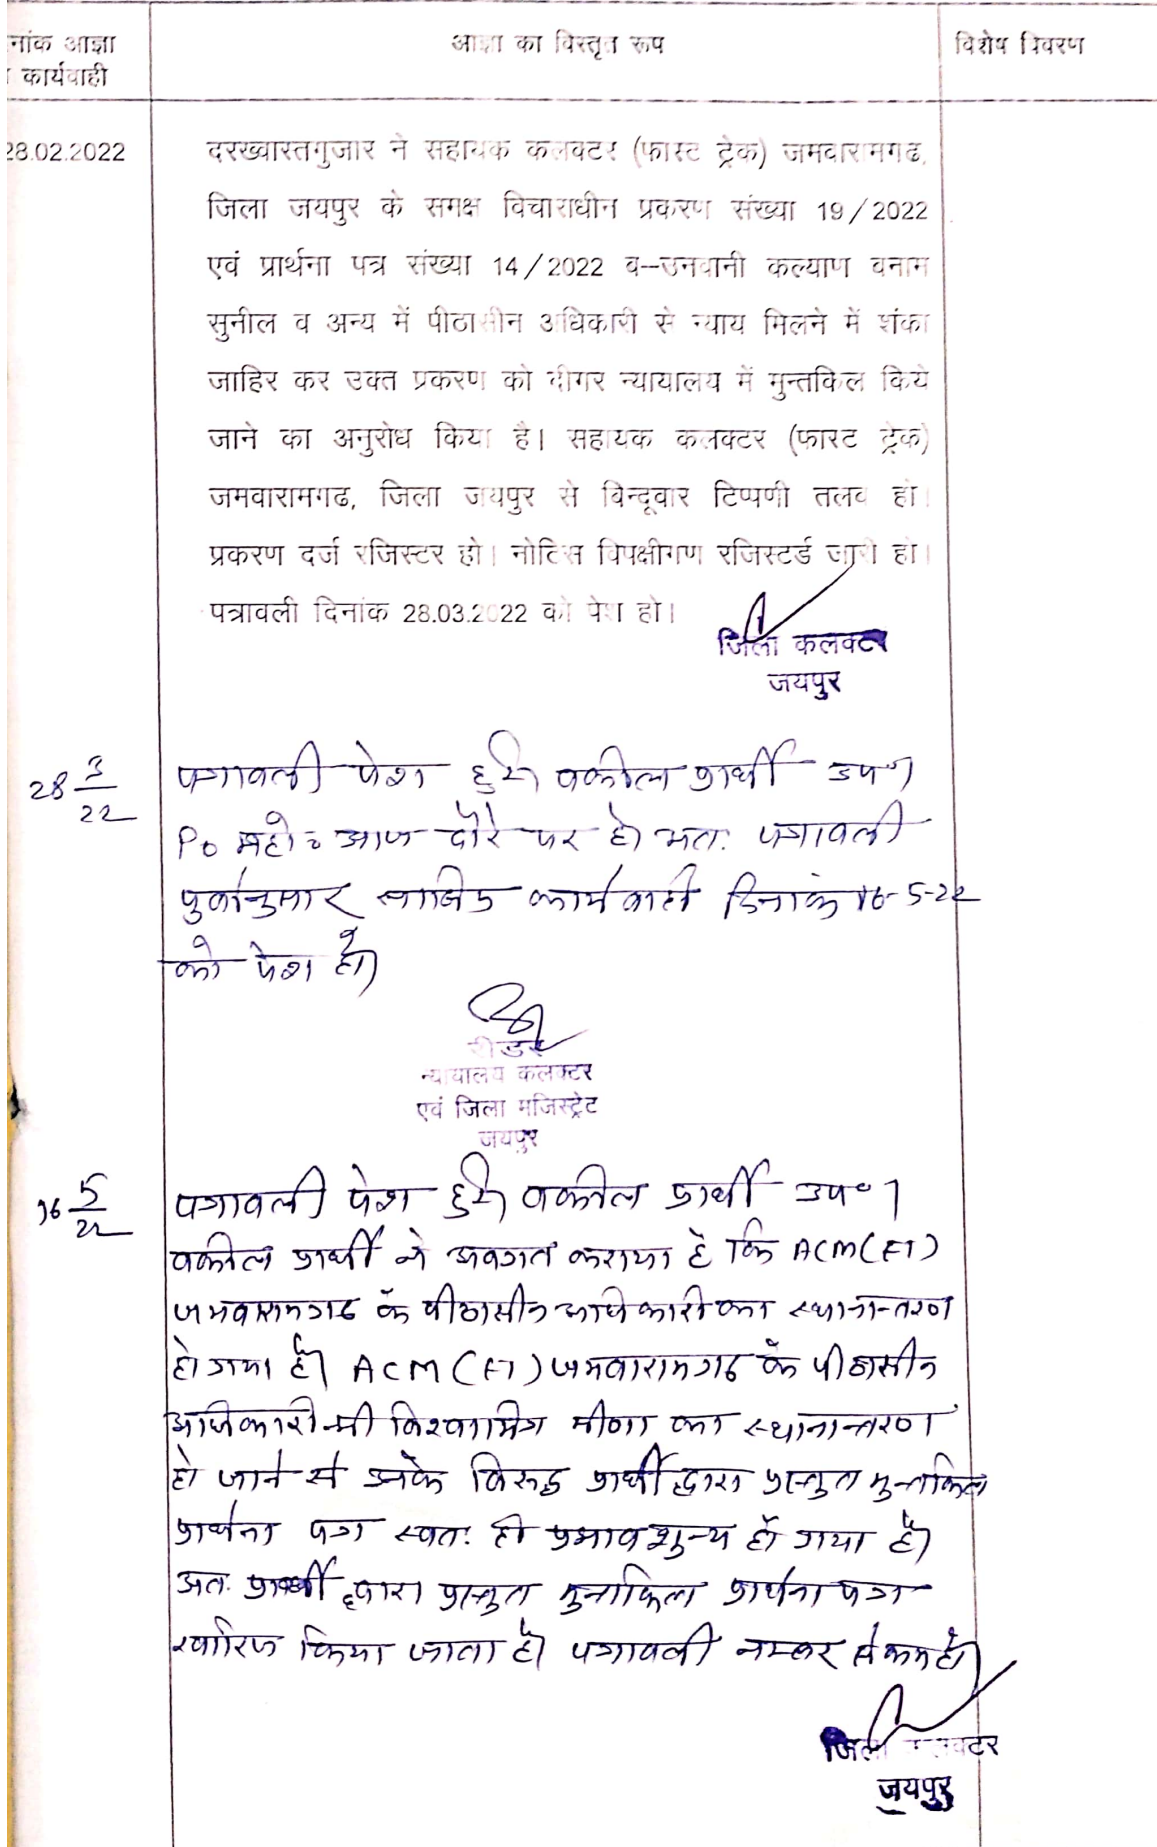 नांक आज्ञा
कार्यवाही
आज्ञा का विस्तृत रूप
विशेष विवरण
28.02.2022
दरख्वास्तगुजार ने सहायक कलक्टर (फास्ट ट्रेक) जमवारामगढ,
जिला जयपुर के समक्ष विचाराधीन प्रकरण संख्या 19/2022
एवं प्रार्थना पत्र संख्या 14/2022 व–उनवानी कल्याण बनाम
सुनील व अन्य में पीठासीन अधिकारी से न्याय मिलने में शंका
जाहिर कर उक्त प्रकरण को दीगर न्यायालय में मुन्तकिल किये
जाने का अनुरोध किया है। सहायक कलक्टर (फास्ट ट्रेक)
जमवारामगढ, जिला जयपुर से बिन्दूवार टिप्पणी तलब हो।
प्रकरण दर्ज रजिस्टर हो। नोटिस विपक्षीगण रजिस्टर्ड जारी हो।
पत्रावली दिनांक 28.03.2022 को पेश हो।
जिला कलक्टर
जयपुर
28 3/22
पत्रावली पेश हुई। वकील प्रार्थी उप०।
Po महो० आज दौरे पर है। अतः पत्रावली
पूर्वानुसार कार्यवाही दिनांक 16-5-22
को पेश हो।
रीडर
न्यायालय कलक्टर
एवं जिला मजिस्ट्रेट
जयपुर
16 5/22
पत्रावली पेश हुई। वकील प्रार्थी उप०।
वकील प्रार्थी ने अवगत कराया है कि ACM(FT)
जमवारामगढ के पीठासीन अधिकारी का स्थानान्तरण
हो गया है। ACM(FT) जमवारामगढ के पीठासीन
अधिकारी श्री विश्वामित्र मीणा का स्थानान्तरण
हो जाने से उनके विरुद्ध प्रार्थी द्वारा प्रस्तुत मुन्तकिल
प्रार्थना पत्र स्वतः ही प्रभाव शून्य हो गया है।
अतः प्रार्थी द्वारा प्रस्तुत मुन्तकिल प्रार्थना पत्र
खारिज किया जाता है। पत्रावली नम्बर से कम हो।
जिला कलक्टर
जयपुर